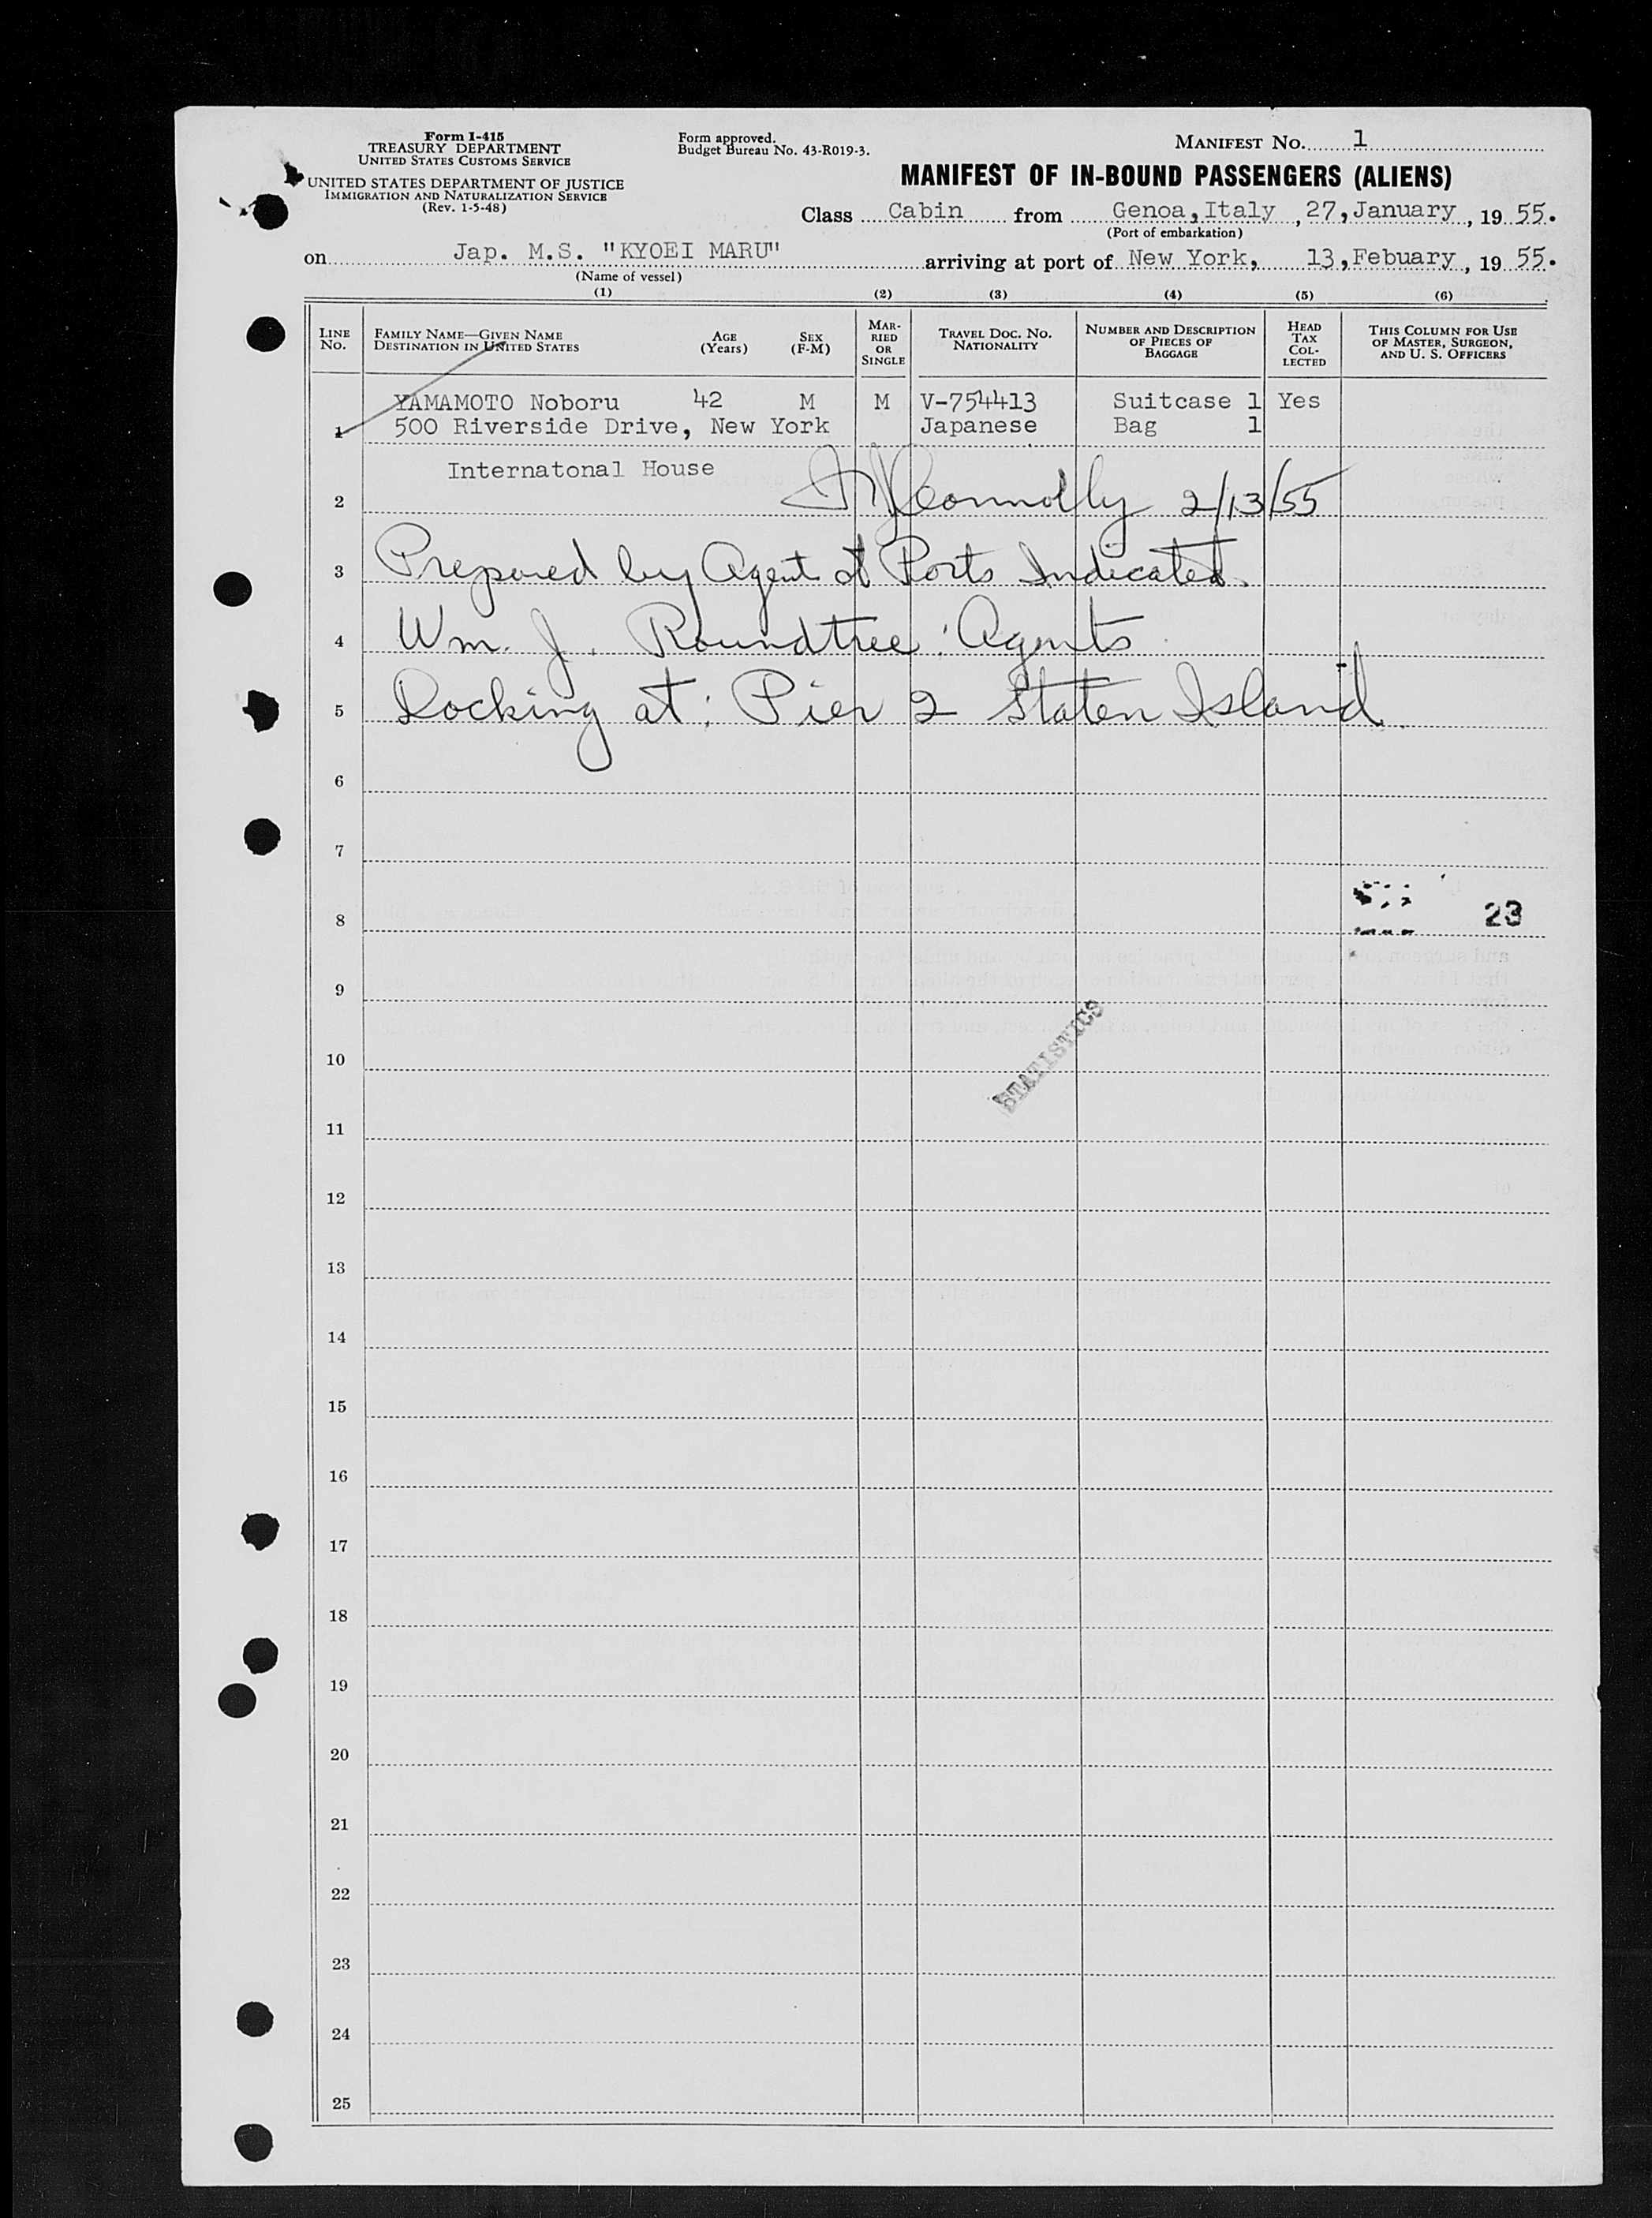 Form I-415
TREASURY DEPARTMENT
UNITED STATES CUSTOMS SERVICE
UNITED STATES DEPARTMENT OF JUSTICE
IMMIGRATION AND NATURALIZATION SERVICE
(Rev. 1-5-48)
Form approved.
Budget Bureau No. 43-R019-3.
MANIFEST No. 1
MANIFEST OF IN-BOUND PASSENGERS (ALIENS)
Class Cabin from Genoa, Italy, 27, January, 19 55.
(Port of embarkation)
on Jap. M.S. "KYOEI MARU" arriving at port of New York, 13, Febuary, 19 55.
(Name of vessel)
(1) (2) (3) (4) (5) (6)
LINE No.
FAMILY NAME—GIVEN NAME
DESTINATION IN UNITED STATES
AGE (Years)
SEX (F-M)
MARRIED OR SINGLE
TRAVEL DOC. NO.
NATIONALITY
NUMBER AND DESCRIPTION OF PIECES OF BAGGAGE
HEAD TAX COLLECTED
THIS COLUMN FOR USE OF MASTER, SURGEON, AND U. S. OFFICERS
YAMAMOTO Noboru 42 M M V-754413 Suitcase 1 Yes
1 500 Riverside Drive, New York Japanese Bag 1
Internatonal House
2 Connolly 2/13/55
3 Prepared by Agent at Ports Indicated.
4 Wm. J. Roundtree: Agents
5 Docking at: Pier 2 Staten Island.
6
7
8 23
9
10
STATISTICS
11
12
13
14
15
16
17
18
19
20
21
22
23
24
25